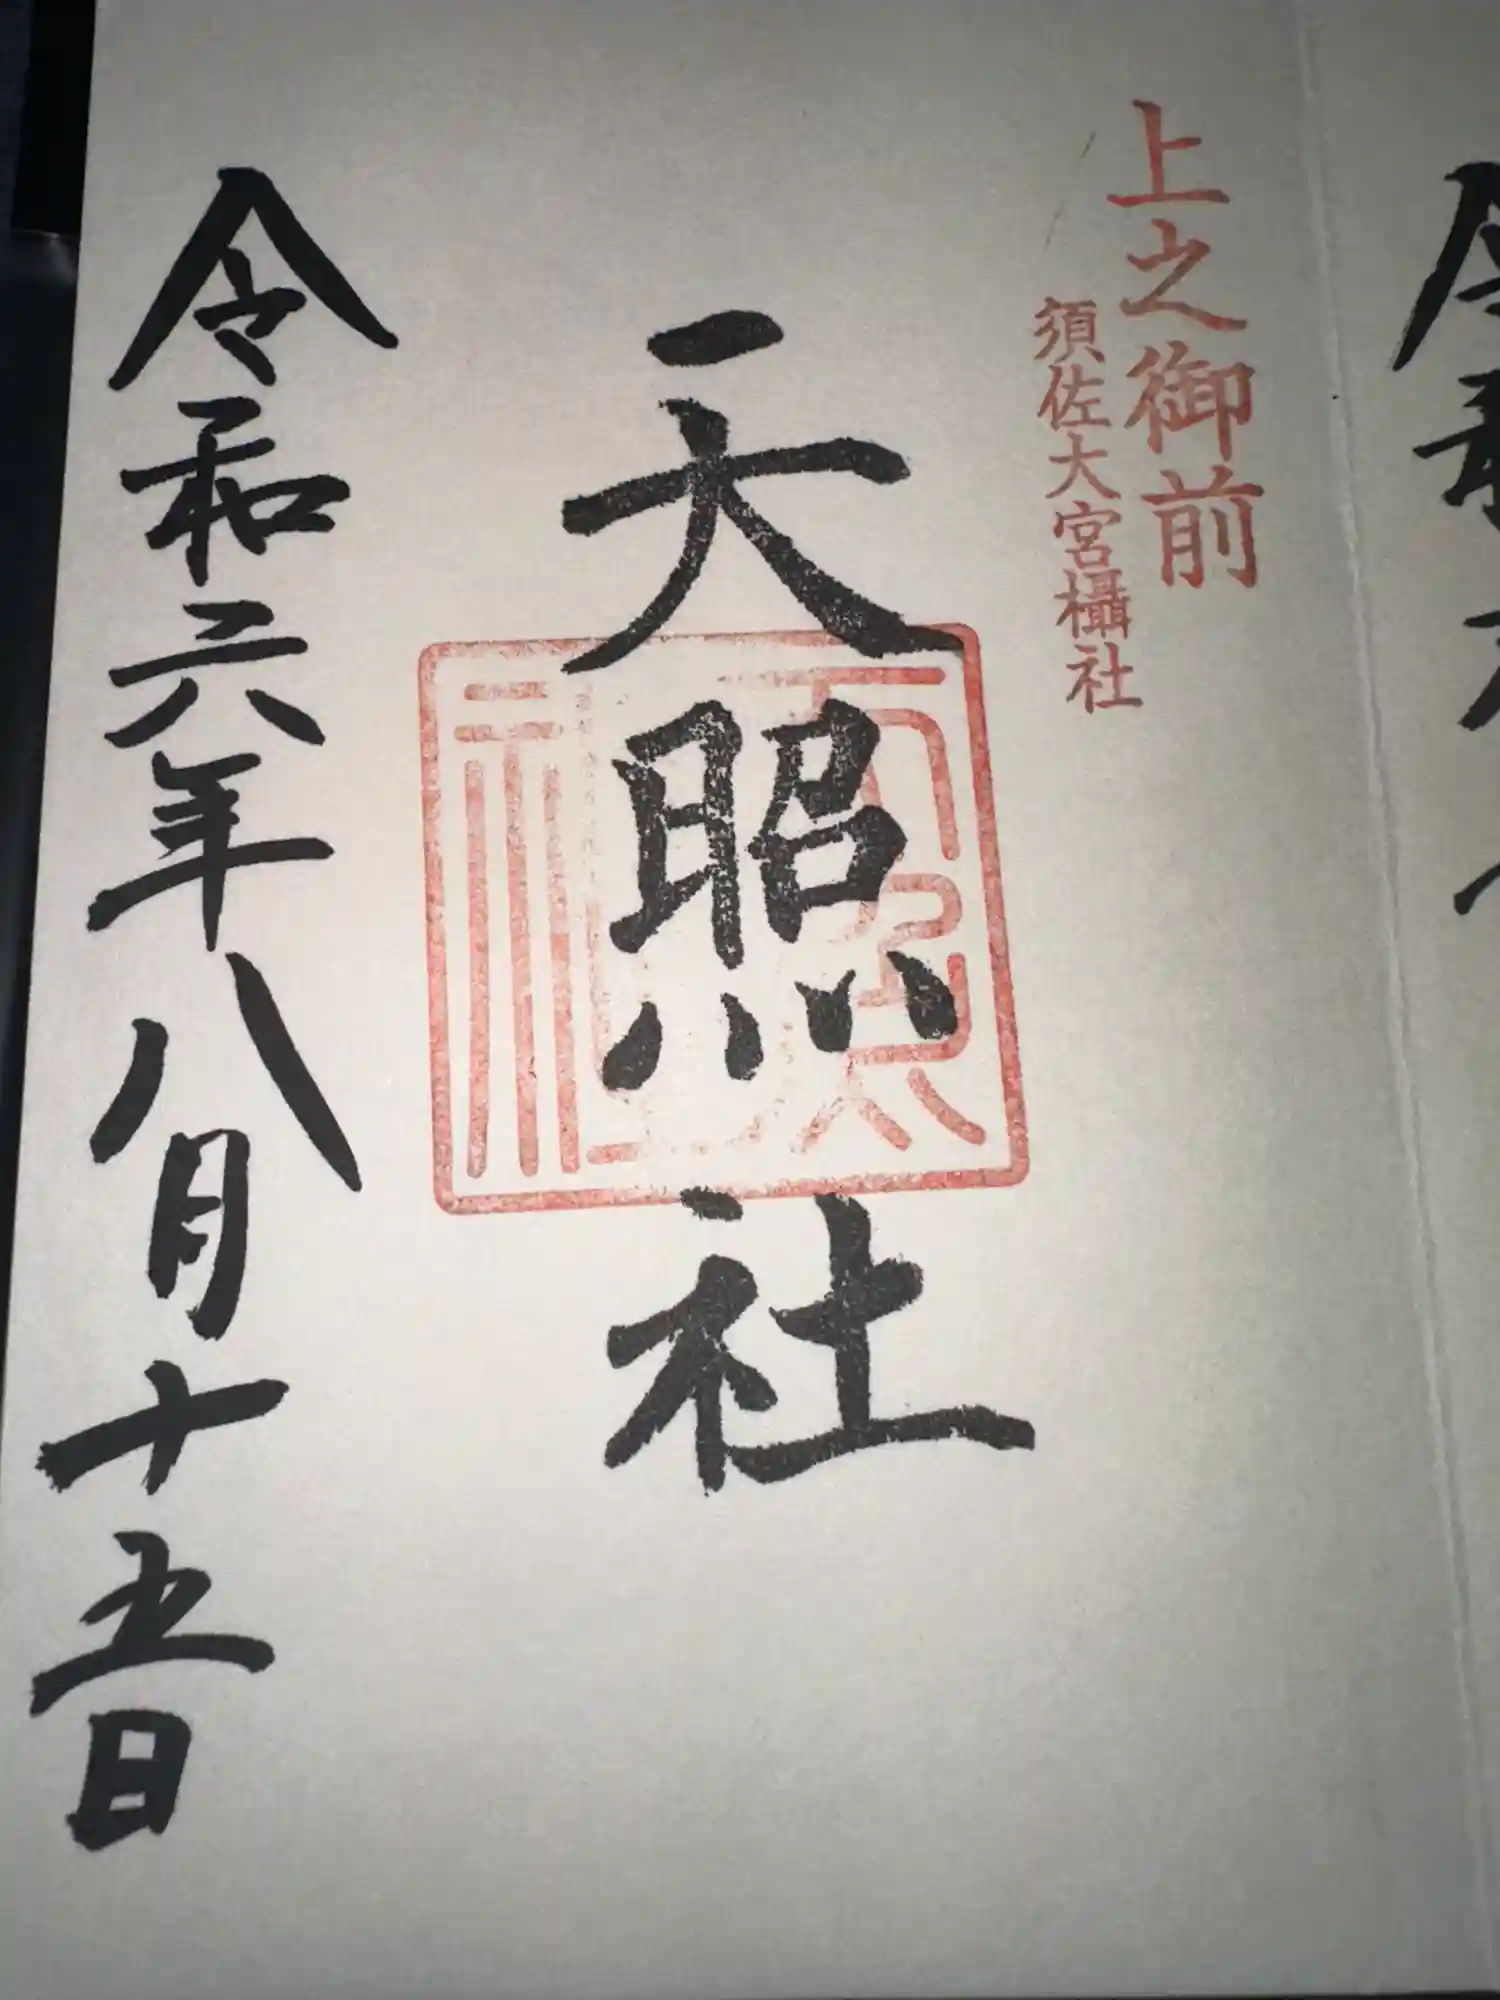 上之御前
須佐大宮攝社
天照社
天照社
令和六年八月十五日
令和